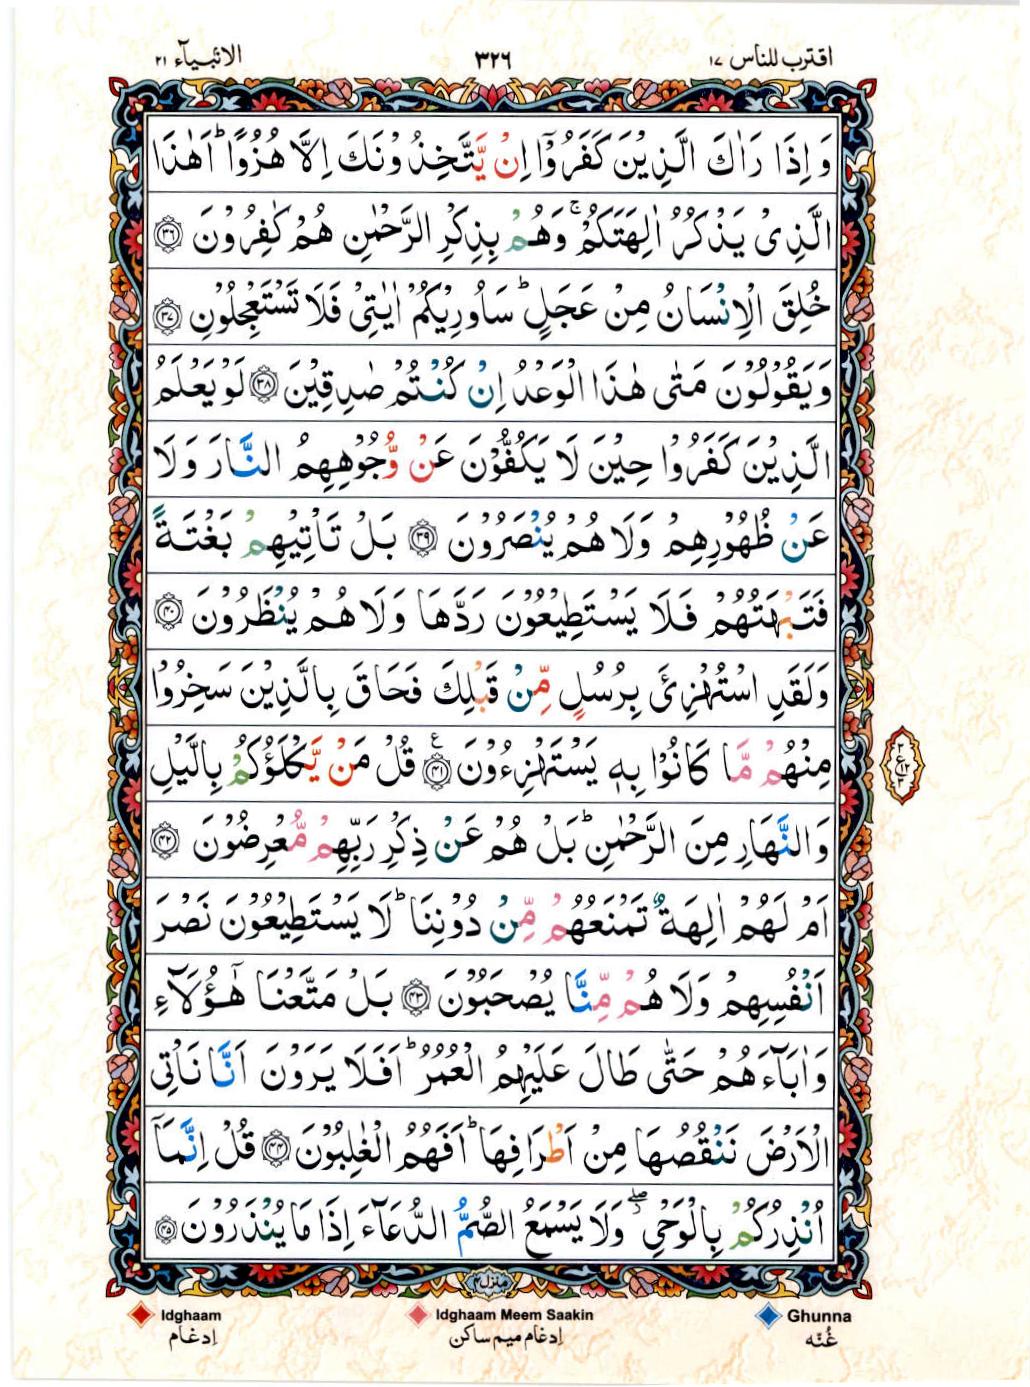 اقترب للناس ١٧
٣٢٦
الانبیآء ٢١
وَ اِذَا رَاٰكَ الَّذِیْنَ كَفَرُوْۤا اِنْ یَّتَّخِذُوْنَكَ اِلَّا هُزُوًا ؕ اَهٰذَا
الَّذِیْ یَذْكُرُ اٰلِهَتَكُمْ ۚ وَهُمْ بِذِكْرِ الرَّحْمٰنِ هُمْ كٰفِرُوْنَ ﴿٣٦﴾
خُلِقَ الْاِنْسَانُ مِنْ عَجَلٍ ؕ سَاُورِیْكُمْ اٰیٰتِیْ فَلَا تَسْتَعْجِلُوْنِ ﴿٣٧﴾
وَیَقُوْلُوْنَ مَتٰی هٰذَا الْوَعْدُ اِنْ كُنْتُمْ صٰدِقِیْنَ ﴿٣٨﴾ لَوْ یَعْلَمُ
الَّذِیْنَ كَفَرُوْا حِیْنَ لَا یَكُفُّوْنَ عَنْ وُّجُوْهِهِمُ النَّارَ وَلَا
عَنْ ظُهُوْرِهِمْ وَلَا هُمْ یُنْصَرُوْنَ ﴿٣٩﴾ بَلْ تَاْتِیْهِمْ بَغْتَةً
فَتَبْهَتُهُمْ فَلَا یَسْتَطِیْعُوْنَ رَدَّهَا وَلَا هُمْ یُنْظَرُوْنَ ﴿٤٠﴾
وَلَقَدِ اسْتُهْزِئَ بِرُسُلٍ مِّنْ قَبْلِكَ فَحَاقَ بِالَّذِیْنَ سَخِرُوْا
مِنْهُمْ مَّا كَانُوْا بِهٖ یَسْتَهْزِءُوْنَ ﴿٤١﴾ ع قُلْ مَنْ یَّكْلَؤُكُمْ بِالَّیْلِ
وَالنَّهَارِ مِنَ الرَّحْمٰنِ ؕ بَلْ هُمْ عَنْ ذِكْرِ رَبِّهِمْ مُّعْرِضُوْنَ ﴿٤٢﴾
اَمْ لَهُمْ اٰلِهَةٌ تَمْنَعُهُمْ مِّنْ دُوْنِنَا ؕ لَا یَسْتَطِیْعُوْنَ نَصْرَ
اَنْفُسِهِمْ وَلَا هُمْ مِّنَّا یُصْحَبُوْنَ ﴿٤٣﴾ بَلْ مَتَّعْنَا هٰۤؤُلَآءِ
وَاٰبَآءَهُمْ حَتّٰی طَالَ عَلَیْهِمُ الْعُمُرُ ؕ اَفَلَا یَرَوْنَ اَنَّا نَاْتِی
الْاَرْضَ نَنْقُصُهَا مِنْ اَطْرَافِهَا ؕ اَفَهُمُ الْغٰلِبُوْنَ ﴿٤٤﴾ قُلْ اِنَّمَاۤ
اُنْذِرُكُمْ بِالْوَحْیِ ۖ وَلَا یَسْمَعُ الصُّمُّ الدُّعَآءَ اِذَا مَا یُنْذَرُوْنَ ﴿٤٥﴾
منزل ٤
Ghunna
غُنّه
Idghaam Meem Saakin
اِدغام میم ساکن
Idghaam
اِدغام